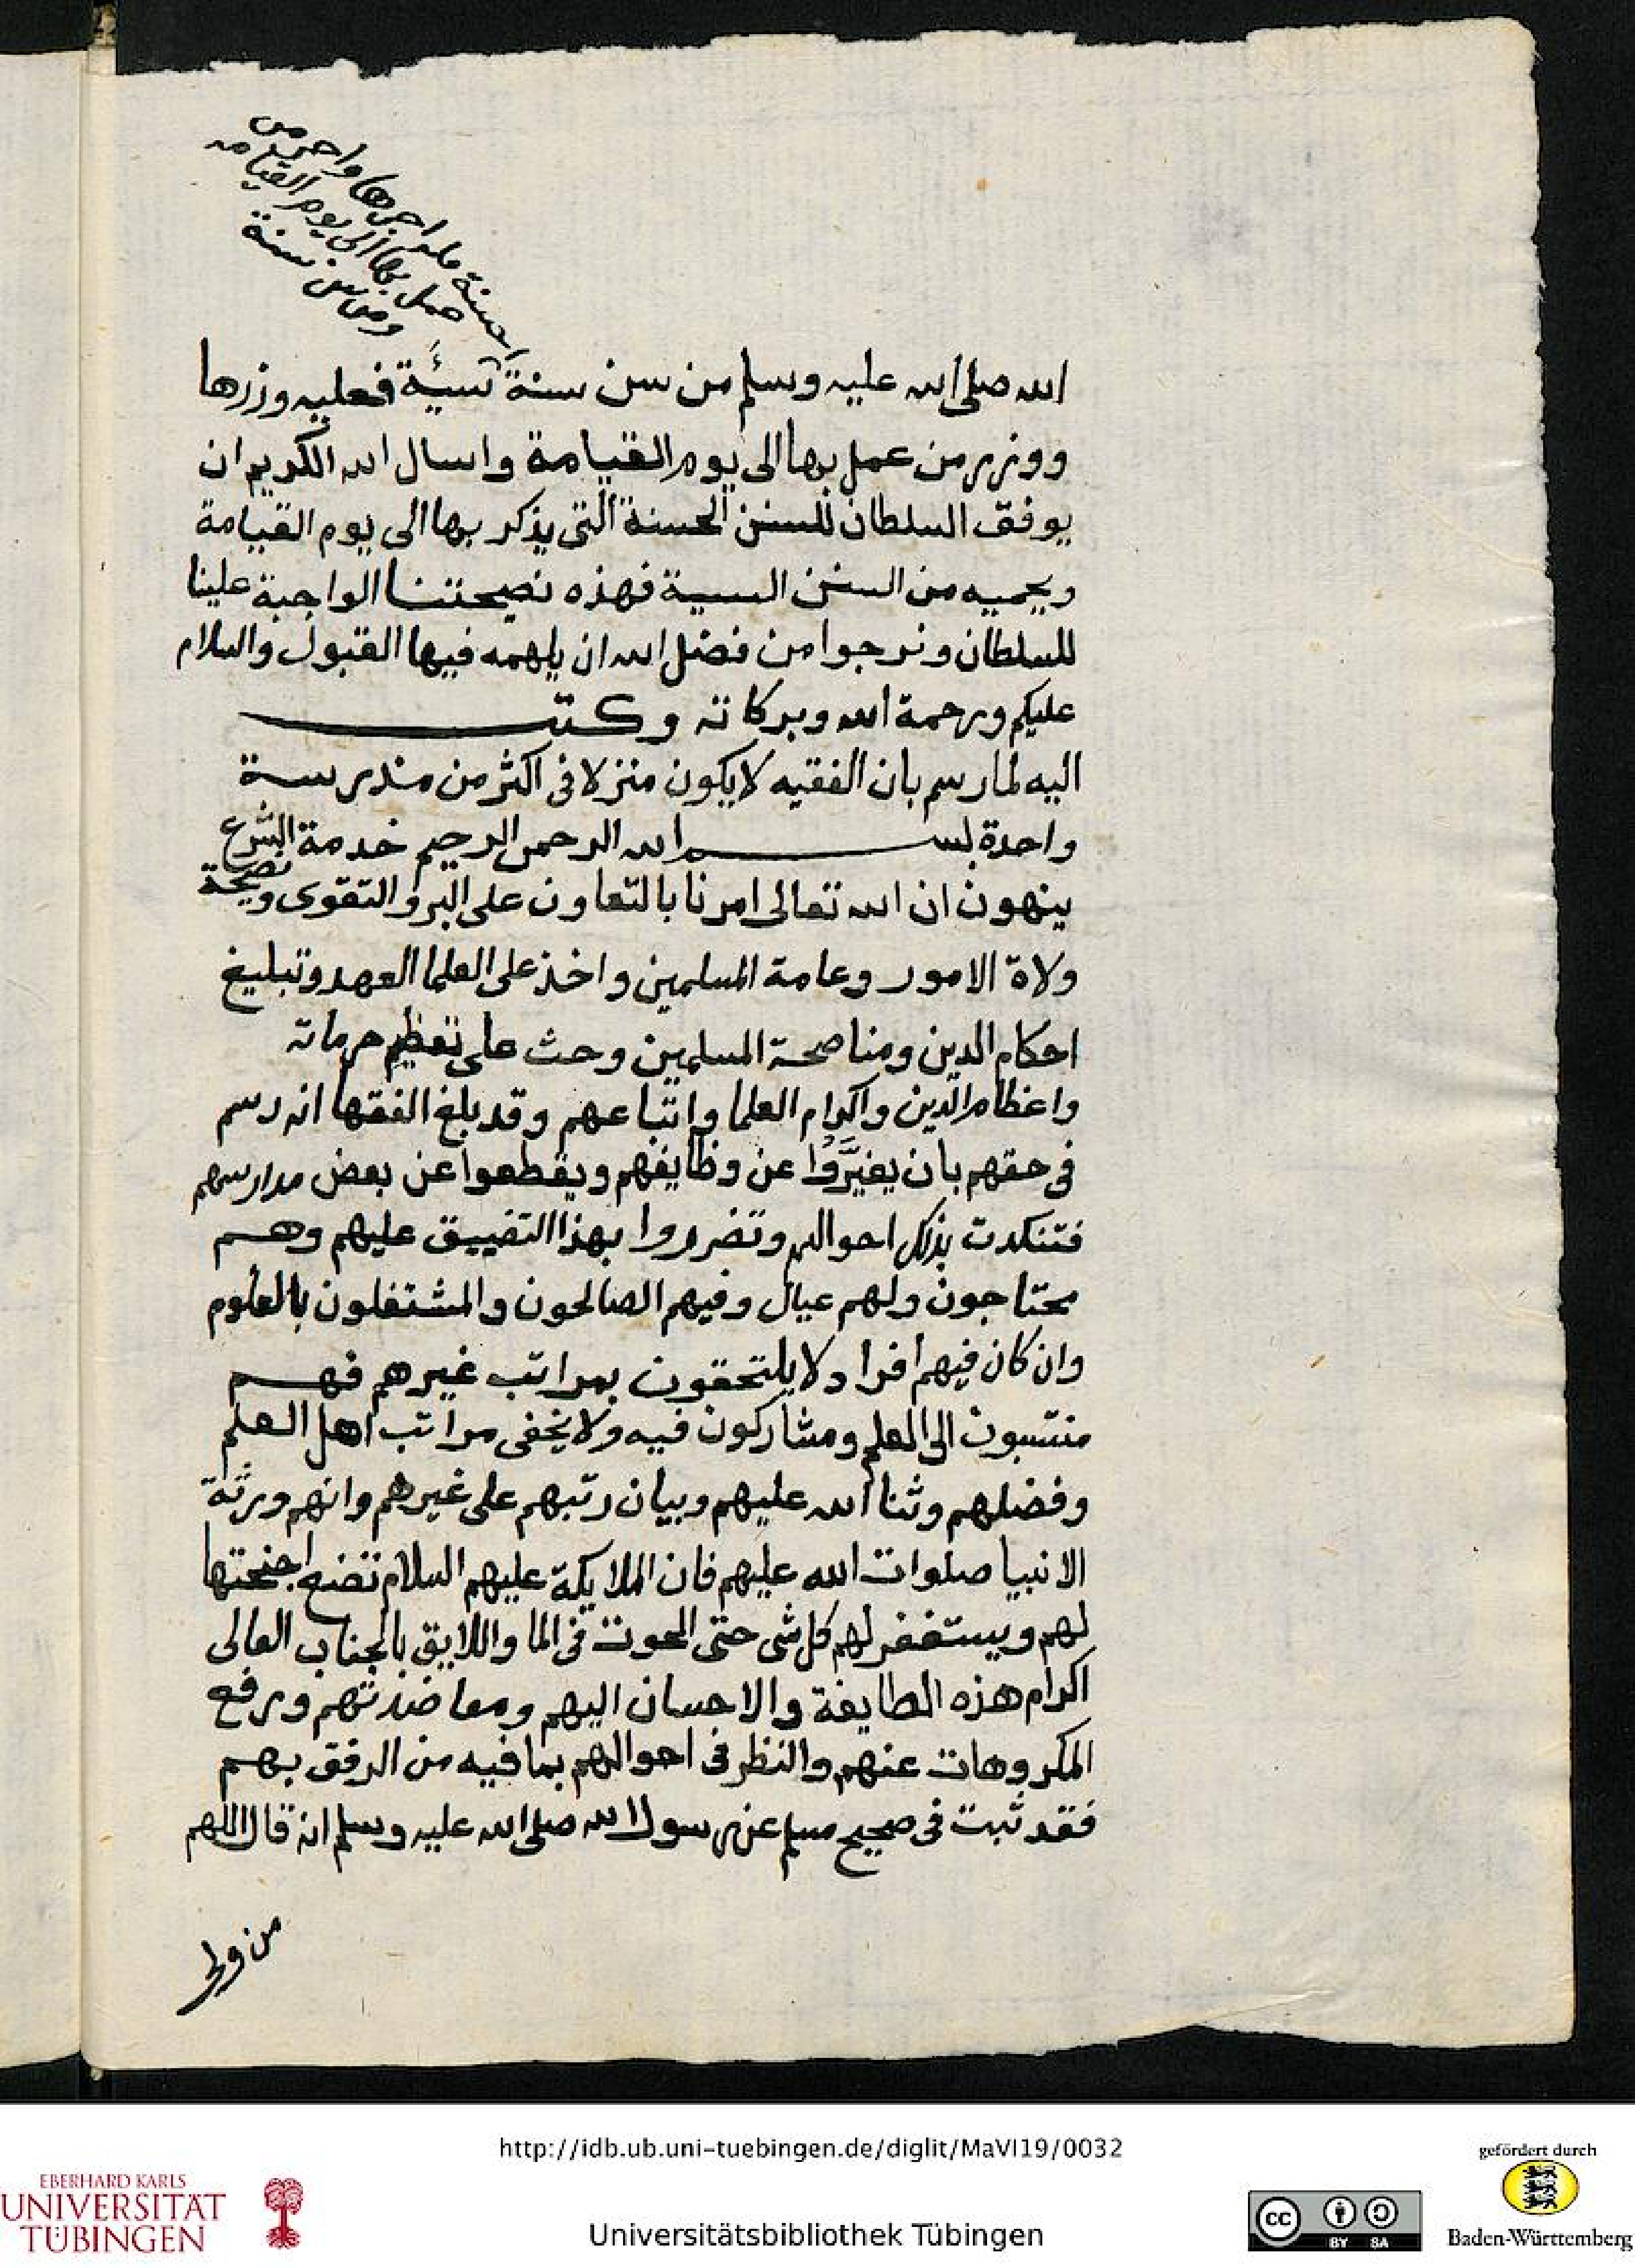 حسنة فله اجرها واجر من
عمل بها الى يوم القيامه
ومن سن سنة
الله صلى الله عليه وسلم من سن سنة سيئة فعليه وزرها
ووزر من عمل بها الى يوم القيامة واسال الله الكريم ان
يوفق السلطان للسنن الحسنة التي يذكر بها الى يوم القيامة
ويحميه من السنن السيية فهذه نصيحتنا الواجبة علينا
للسلطان ونرجوا من فضل الله ان يلهمه فيها القبول والسلام
عليكم ورحمة الله وبركاته وكتب
اليه لما رسم بان الفقيه لا يكون منزلا في اكثر من مدرسة
واحدة بسم الله الرحمن الرحيم خدمة الشرع
ينهون ان الله تعالى امرنا بالتعاون على البر والتقوى ونصيحة
ولاة الامور وعامة المسلمين واخذ على العلما العهد وتبليغ
احكام الدين ومناصحة المسلمين وحث على تعظيم حرماته
واعظام الدين واكرام العلما واتباعهم وقد بلغ الفقها انه رسم
في حقهم بان يغيروا عن وظايفهم ويقطعوا عن بعض مدارسهم
فتنكدت بذلك احوالهم وتضرروا بهذا التضييق عليهم وهم
محتاجون ولهم عيال وفيهم الصالحون والمشتغلون بالعلوم
وان كان فيهم افراد لا يلتحقون بمراتب غيرهم فهم
منتسبون الى العلم ومشاركون فيه ولا يخفى مراتب اهل العلم
وفضلهم وثنا الله عليهم وبيان رتبهم على غيرهم وانهم ورثة
الانبيا صلوات الله عليهم فان الملايكة عليهم السلام تضع اجنحتها
لهم ويستغفر لهم كل شى حتى الحوت فى الما واللايق بالجناب العالى
اكرام هذه الطايفة والاحسان اليهم ومعاضدتهم ورفع
المكروهات عنهم والنظر فى احوالهم بما فيه من الرفق بهم
فقد ثبت فى صحيح مسلم عن رسول الله صلى الله عليه وسلم انه قال اللهم
من ولى
http://idb.ub.uni-tuebingen.de/diglit/MaVI19/0032
gefördert durch
EBERHARD KARLS
UNIVERSITÄT
TÜBINGEN
Universitätsbibliothek Tübingen
cc BY SA
Baden-Württemberg